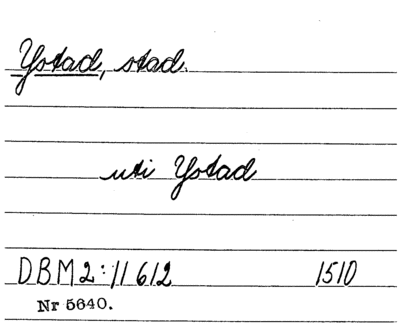 Ystad, stad.
uti Ystad
DBM 2:11 612 1510
Nr 5640.